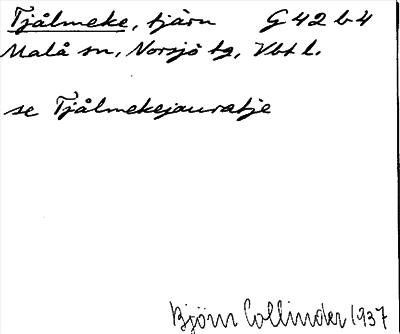 Tjålmeke, tjärn G 42 b 4
Malå sn, Norsjö tg, Vbt l.
se Tjålmekejauratje
Björn Collinder 1937